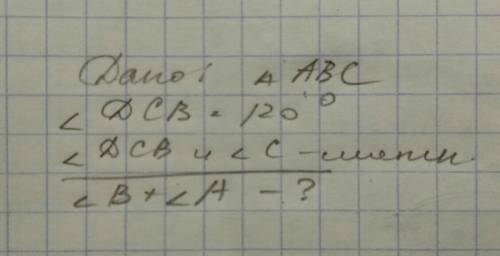 Дано: △ ABC
∠ DCB = 120°
∠ DCB и ∠ C - смежн
∠ B + ∠ A - ?